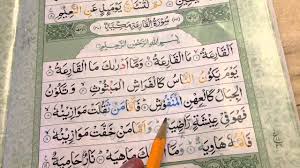 يَوْمَئِذٍ عَنِ النَّعِيمِ
سُورَةُ الْقَارِعَةِ مَكِّيَّةٌ
بِسْمِ اللهِ الرَّحْمٰنِ الرَّحِيمِ
اَلْقَارِعَةُ ۝ مَا الْقَارِعَةُ ۝ وَمَا أَدْرٰيكَ مَا الْقَارِعَةُ ۝
يَوْمَ يَكُونُ النَّاسُ كَالْفَرَاشِ الْمَبْثُوثِ ۝ وَتَكُونُ
الْجِبَالُ كَالْعِهْنِ الْمَنْفُوشِ ۝ فَأَمَّا مَنْ ثَقُلَتْ مَوَازِينُهُ ۝
فَهُوَ فِي عِيشَةٍ رَاضِيَةٍ ۝ وَأَمَّا مَنْ خَفَّتْ مَوَازِينُهُ ۝
هَاوِيَةٌ ۝ وَمَا أَدْرٰيكَ مَا هِيَهْ ۝ نَارٌ حَامِيَةٌ